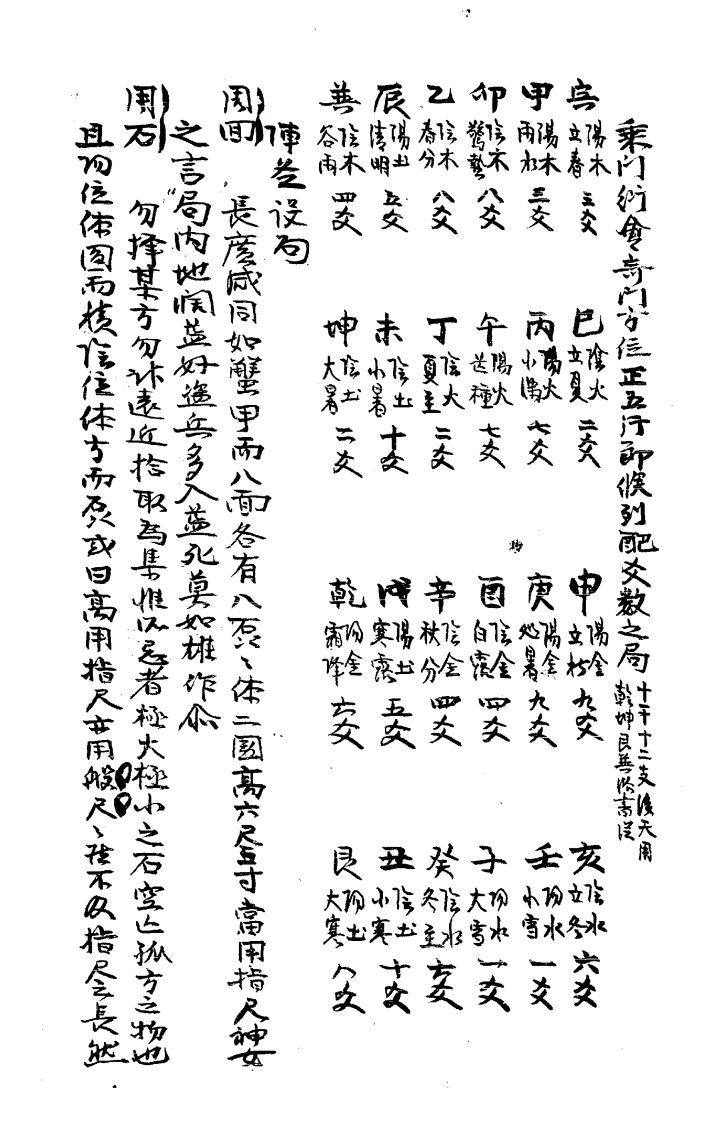 乘門衍會奇門方位正五行節候列配爻數之局 十干十二支後天用乾坤艮巽
寅 陽木 立春 三爻
甲 陽木 雨水 三爻
卯 陰木 驚蟄 八爻
乙 陰木 春分 八爻
辰 陽土 清明 五爻
巽 陰木 谷雨 四爻
巳 陰火 立夏 二爻
丙 陽火 小滿 七爻
午 陽火 芒種 七爻
丁 陰火 夏至 二爻
未 陰土 小暑 十爻
坤 陰土 大暑 二爻
申 陽金 立秋 九爻
庚 陽金 處暑 九爻
酉 陰金 白露 四爻
辛 陰金 秋分 四爻
戌 陽土 寒露 五爻
乾 阳金 霜降 六爻
亥 陰水 立冬 六爻
壬 阳水 小雪 一爻
子 阳水 大雪 一爻
癸 陰水 冬至 六爻
丑 陰土 小寒 十爻
艮 阳土 大寒 八爻
陣 设局
周回 長廣咸同如蟹甲而八面各有八磊々体二圓高六尺五寸當用指尺神女
之言局内地闊益好盜兵多入益死莫如雄作
周石 勿擇某方勿計遠近拾取為集惟以忌者極大極小之石空亡孤方之物也
且阳位体圆而積陰位体方而磊或曰高用指尺亦用般尺々法不及指尺之長然